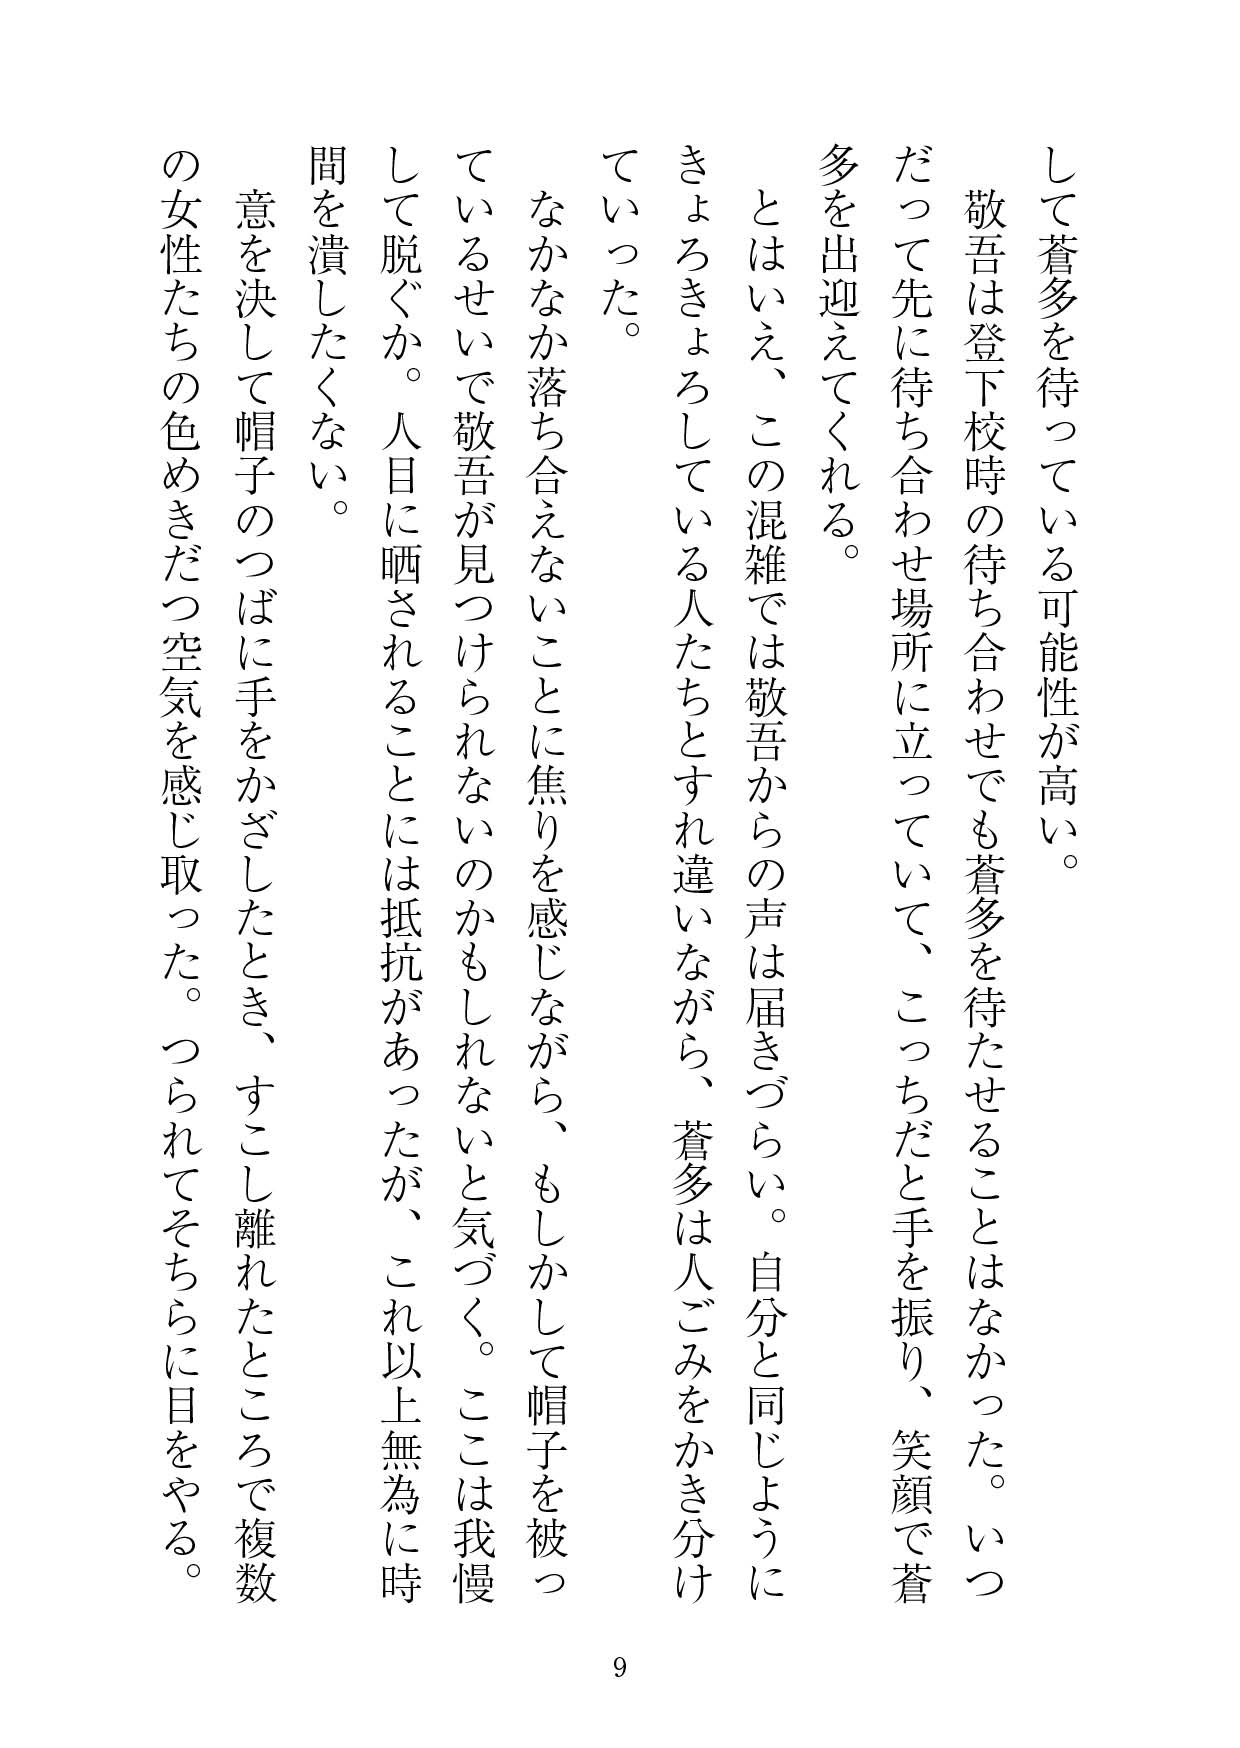 して蒼多を待っている可能性が高い。
　敬吾は登下校時の待ち合わせでも蒼多を待たせることはなかった。いつ
だって先に待ち合わせ場所に立っていて、こっちだと手を振り、笑顔で蒼
多を出迎えてくれる。
　とはいえ、この混雑では敬吾からの声は届きづらい。自分と同じように
きょろきょろしている人たちとすれ違いながら、蒼多は人ごみをかき分け
ていった。
　なかなか落ち合えないことに焦りを感じながら、もしかして帽子を被っ
ているせいで敬吾が見つけられないのかもしれないと気づく。ここは我慢
して脱ぐか。人目に晒されることには抵抗があったが、これ以上無為に時
間を潰したくない。
　意を決して帽子のつばに手をかざしたとき、すこし離れたところで複数
の女性たちの色めきだつ空気を感じ取った。つられてそちらに目をやる。
9